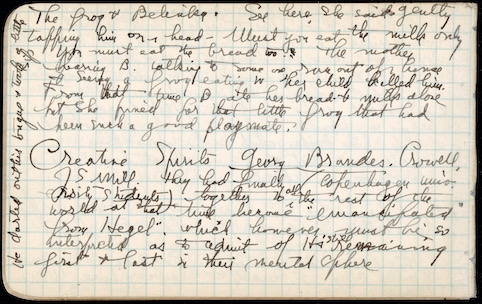 The frog & Belenka. See here, she said gently
tapping him on head - Must you eat the milk only
You must eat the bread too. The mother
hearing B talking to some one ran out of house
& seeing a frog eating w her child killed him.
From that time B ate her bread & milk alone
but she pined for that little frog that had
been such a good playmate.
Creative Spirits Georg Brandes. Crowell,
J S Mill. they had finally Copenhagen univ-
ersity students together to all the rest of the
world at that time become "emancipated
from Hegel" which however must be so
interpreted as to admit of His remaining
first & last in their mental sphere
He darted out his tongue & took a little